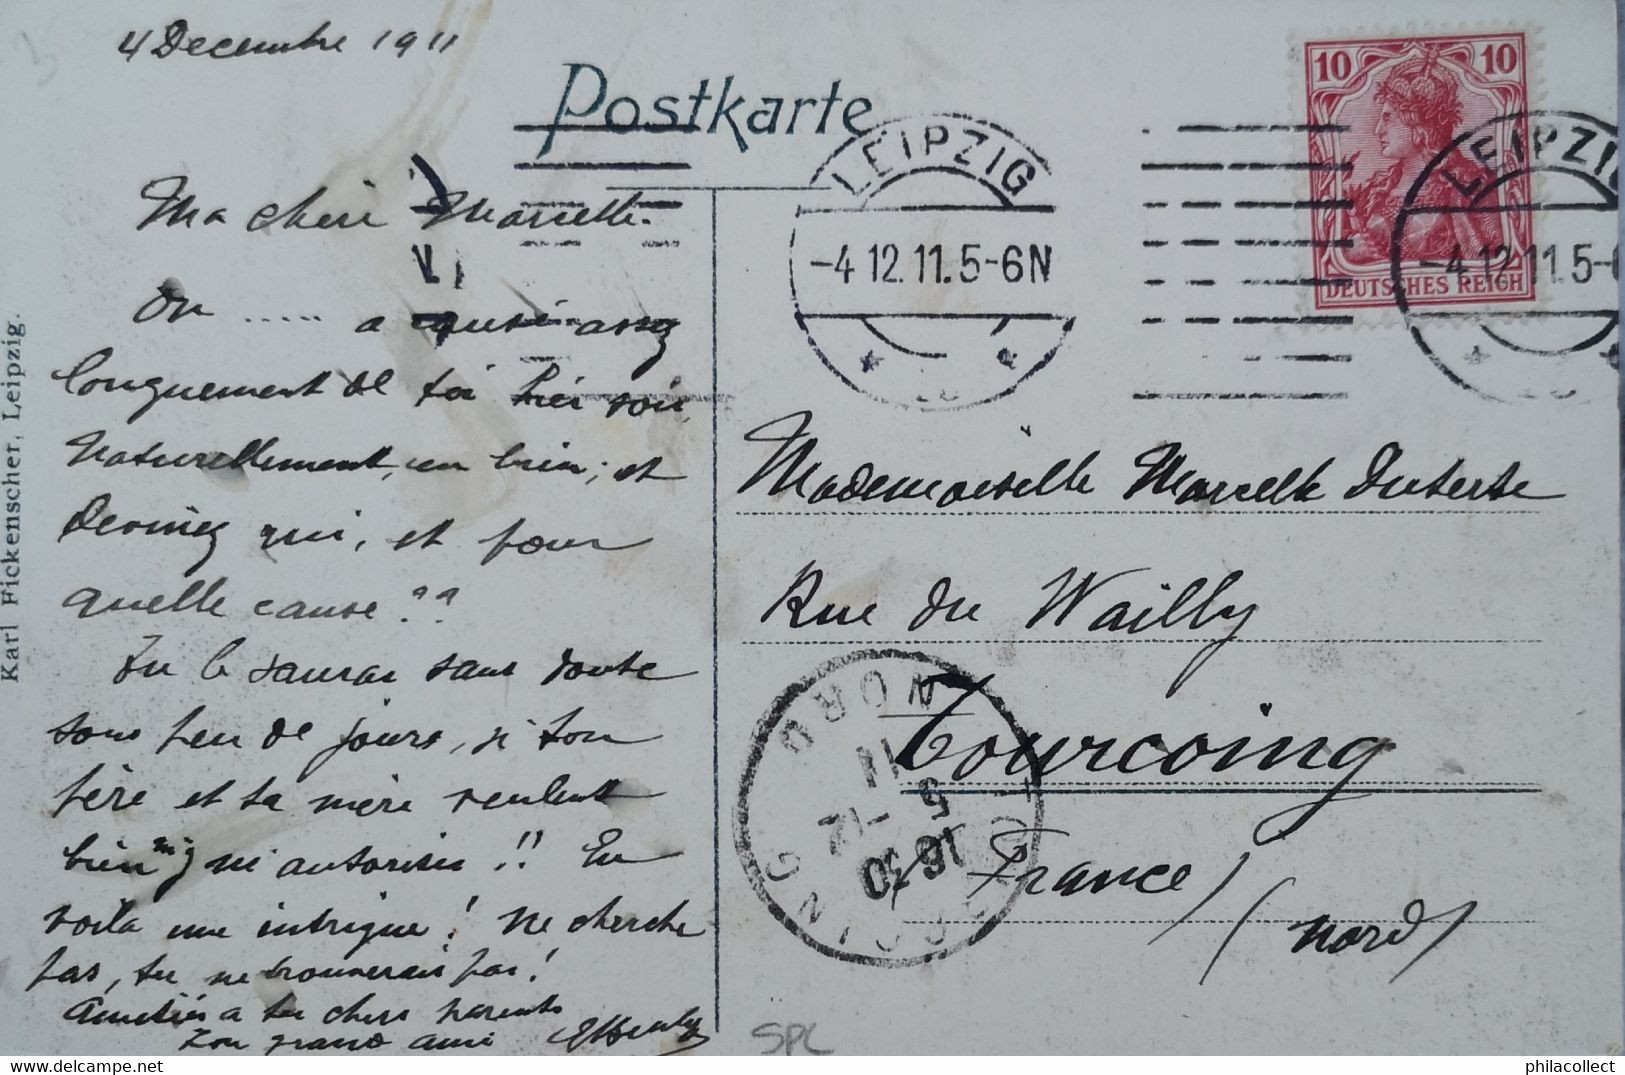 4 Decembre 1911
Postkarte
10 10
DEUTSCHES REICH
LEIPZIG
-4.12.11.5-6N
LEIPZIG
-4.12.11.5-
Ma chère Marcelle.
On ..... a causé assez
longuement de toi hier soir
Naturellement, en bien; et
Devinez qui, et pour
quelle cause??
Tu le sauras sans doute
sous peu de jours, si ton
père et ta mère veulent
bien m'y autoriser!! En
voila une intrigue! Ne cherche
pas, tu ne trouverais pas!
Amitiés a tes chers parents
Ton grand ami
Mademoiselle Marcelle Duterte
Rue du Wailly
Tourcoing
France
(Nord)
TOURCOING
NORD
16 30
5 -12
11
Karl Fickenscher, Leipzig.
SPL
https://www.delcampe.net
philacollect